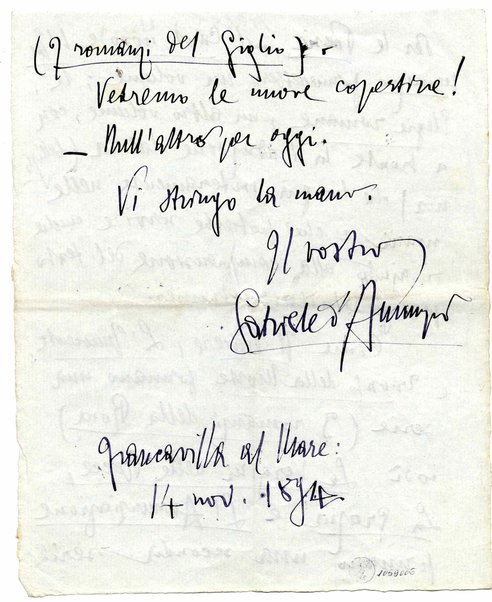 (I romanzi del Giglio).-
Vedremo le nuove copertine!
— Null'altro per oggi.
Vi stringo la mano.
Il vostro
Gabriele d'Annunzio
Francavilla al Mare:
14 nov. 1894.